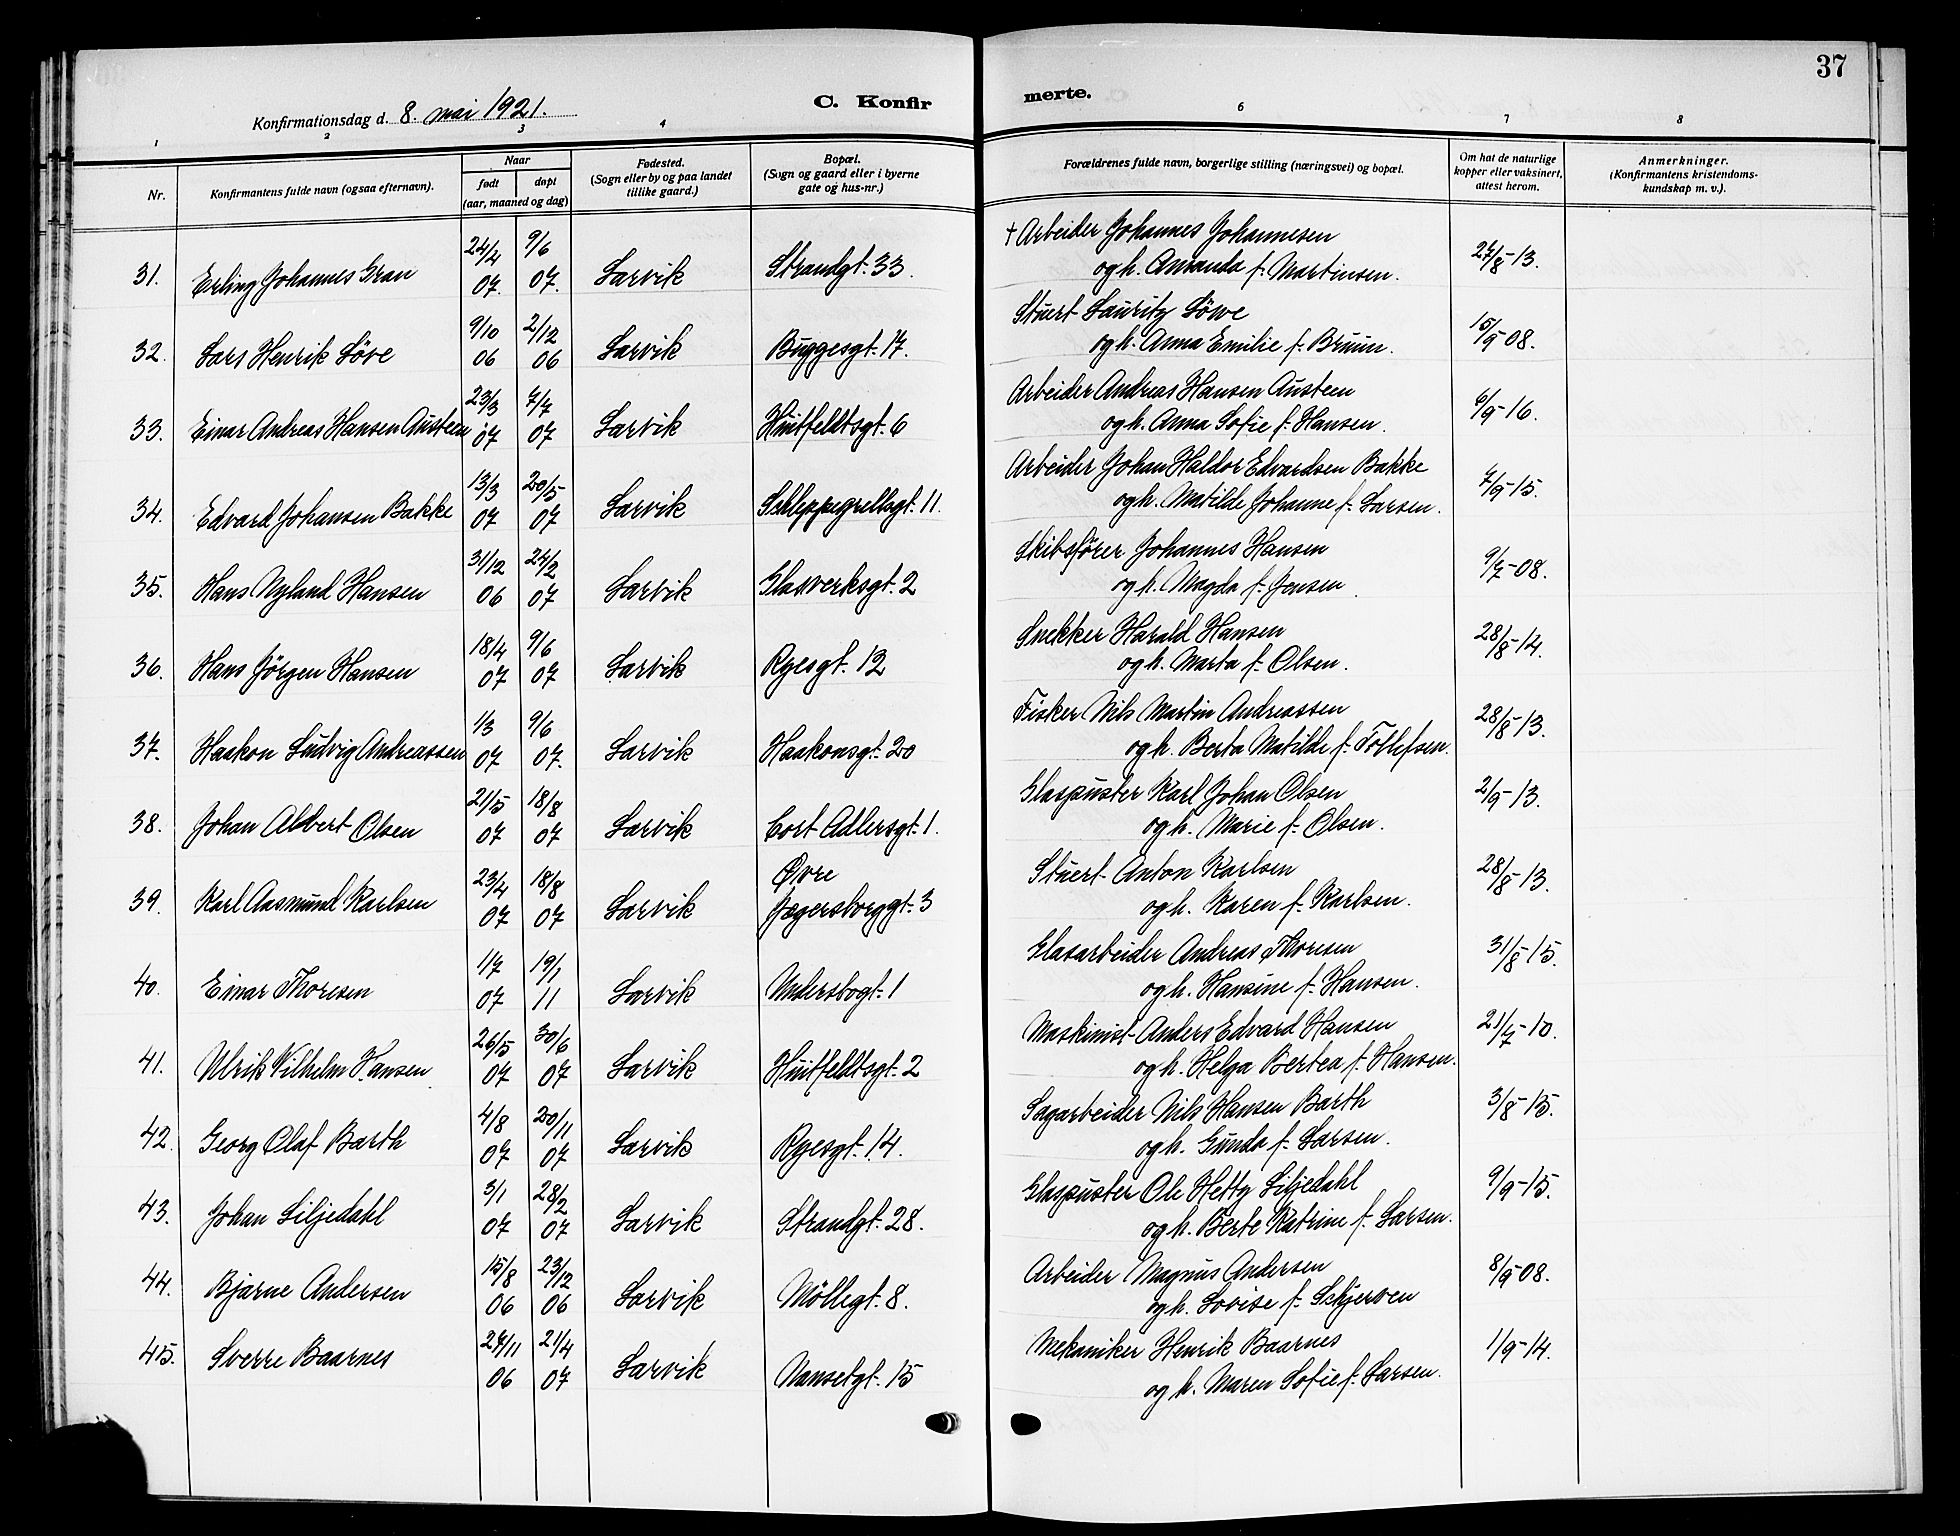 37
C. Konfir
merte.
Konfirmationsdag d. 8. mai 1921.
1 2 3 4 6 7 8
Nr.
Konfirmantens fulde navn (ogsaa efternavn).
Naar
født døpt
(aar, maaned og dag)
Fødested.
(Sogn eller by og paa landet
tillike gaard.)
Bopæl.
(Sogn og gaard eller i byerne
gate og hus-nr.)
Forældrenes fulde navn, borgerlige stilling (næringsvei) og bopæl.
Om hat de naturlige
kopper eller vaksinert,
attest herom.
Anmerkninger.
(Konfirmantens kristendoms-
kundskap m. v.).
24/4 9/6 † Arbeider Johannes Johannesen
31. Erling Johannes Gran 07. 07. Larvik Strandgt. 33. og h. Amanda f. Martinsen. 27/8-13.
9/10 2/12 Stuert Lauritz Löwe
32. Lars Henrik Löve 06 06 Larvik Buggesgt. 17. og h. Anna Emilie f. Bruun. 15/9-08.
23/3 7/7 Arbeider Andreas Hansen Austeen
33. Einar Andreas Hansen Austeen 07 07 Larvik Huitfeldtsgt. 6 og h. Anna Sofie f. Hansen. 6/9-16.
13/3 20/5 Arbeider Johan Haldor Edvardsen Bakke
34. Edvard Johansen Bakke 07 07 Larvik Schleppegrellsgt. 11. og h. Matilde Johanne f. Larsen. 7/9-15.
31/12 24/2 Skibsförer Johannes Hansen
35. Hans Nyland Hansen 06 07 Larvik Glasverksgt. 2 og h. Magda f. Jensen. 9/7-08.
18/4 9/6 Snekker Harald Hansen
36. Hans Jörgen Hansen 07 07 Larvik Ryesgt. 12 og h. Marta f. Olsen. 28/8-14.
1/3 9/6 Fisker Nils Martin Andreassen
37. Haakon Ludvig Andreassen 07 07. Larvik Haakonsgt. 20 og h. Berta Matilde f. Tollefsen. 28/8-13.
21/5 18/8 Glaspuster Karl Johan Olsen
38. Johan Albert Olsen 07 07 Larvik Cort Adlersgt. 1. og h. Marie f. Olsen. 2/9-13.
23/4 18/8 Øvre Stuert Anton Karlsen
39. Karl Aasmund Karlsen 07 07 Larvik Jægersborggt. 3 og h. Karen f. Karlsen. 28/8-13.
1/7 19/1 Glasarbeider Andreas Thoresen
40. Einar Thoresen 07 11 Larvik Undersbogt. 1 og h. Hansine f. Hansen. 31/8-15.
26/5 30/6 Maskinist Anders Edvard Hansen
41. Ulrik Vilhelm Hansen 07 07 Larvik Huitfeldtsgt. 2 og h. Helga Bertea f. Hansen. 21/7-10.
4/8 20/11 Sagarbeider Nils Hansen Barth
42. Georg Olaf Barth 07 07 Larvik Ryesgt. 14. og h. Gunda f. Larsen. 3/8-15.
3/1 28/2 Glaspuster Ole Hetty Liljedahl
43. Johan Liljedahl 07 07 Larvik Strandgt. 28. og h. Berte Katrine f. Larsen. 9/9-15.
15/8 23/12 Arbeider Magnus Andersen
44. Bjarne Andersen 06 06 Larvik Möllegt. 8. og h. Lovise f. Schjerven 8/9-08.
27/11 21/4 Mekaniker Henrik Baarnes
45. Sverre Baarnes 06 07 Larvik Nansetgt. 15 og h. Maren Sofie f. Larsen. 1/9-14.